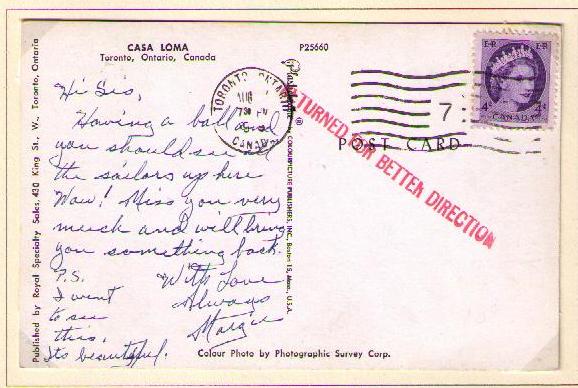 CASA LOMA
Toronto, Ontario, Canada
P25660
Hi Sis,
Having a ball and
you should see all
the sailors up here
Wow! Miss you very
much and will bring
you something back.
With Love
Always
Margie
P.S.
I went
to see
this.
Its beautiful.
Published by Royal Specialty Sales, 430 King St. W., Toronto, Ontario
Plastichrome ® COLOURPICTURE PUBLISHERS, INC., Boston 15, Mass., U.S.A.
Colour Photo by Photographic Survey Corp.
TORONTO ONTARIO
AUG
730 PM
CANADA
7
POST CARD
RETURNED FOR BETTER DIRECTION
E II R E II R
4¢ 4¢
CANADA